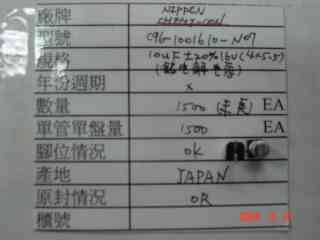 廠牌 NIPPEN CHEMI-CON
型號 C96-1001610-N07
規格 10uF ±20% 16V (4×5.5)
(鋁電解電容)
年份週期 x
數量 1500 EA
單管單盤量 1500 EA
腳位情況 OK
產地 JAPAN
原封情況 OR
櫃號